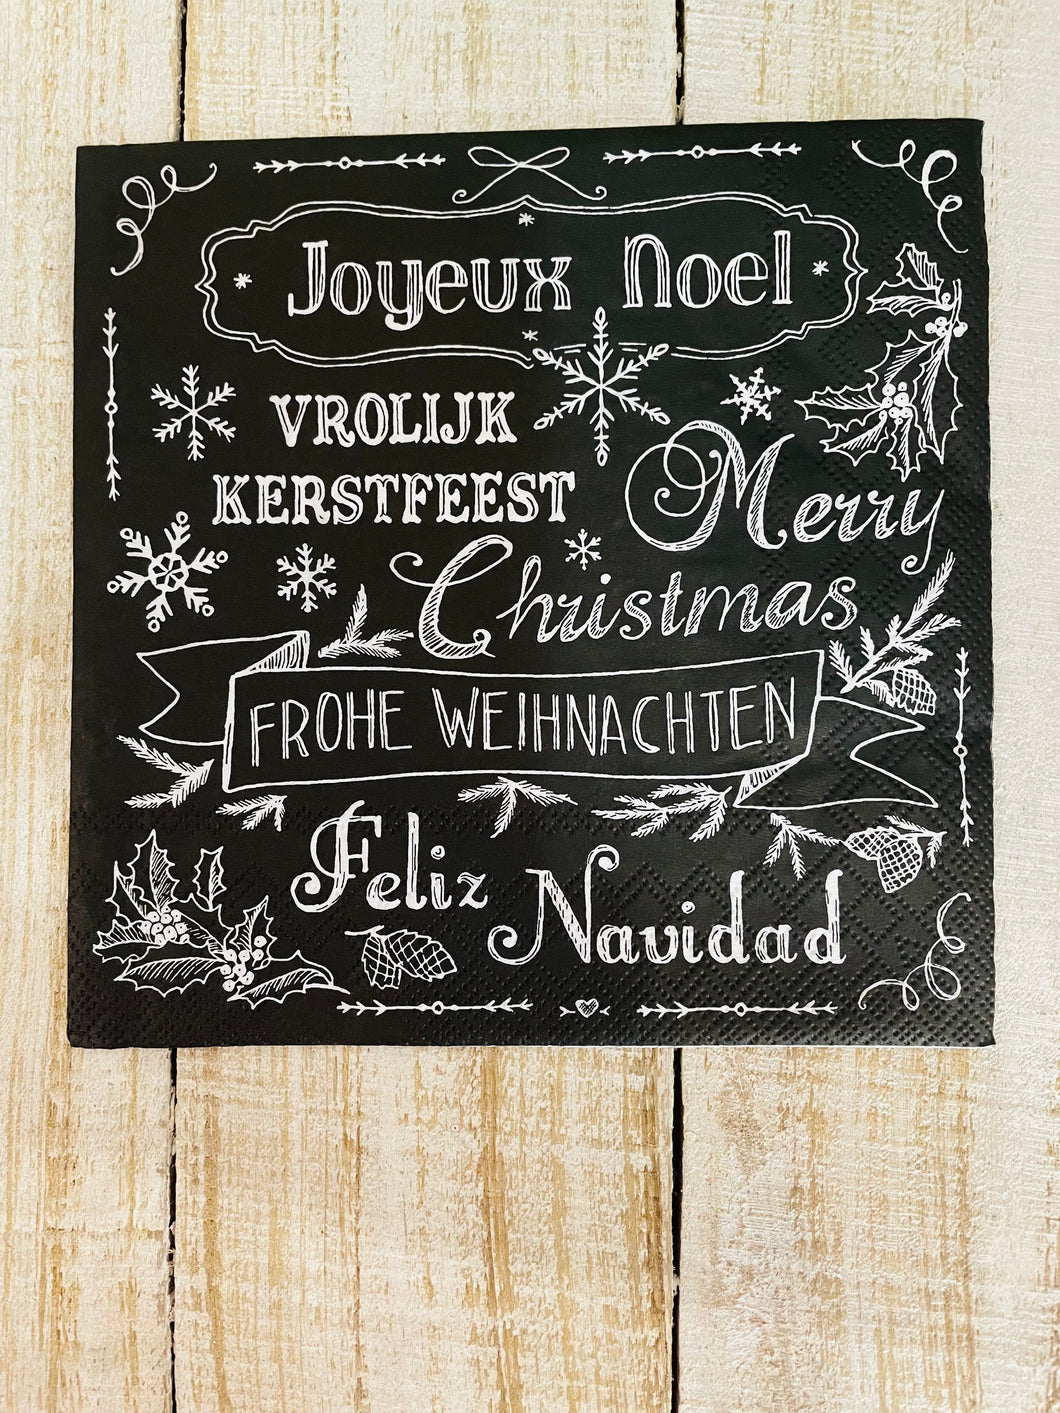 Joyeux Noel
VROLIJK
KERSTFEEST
Merry
Christmas
FROHE WEIHNACHTEN
Feliz
Navidad